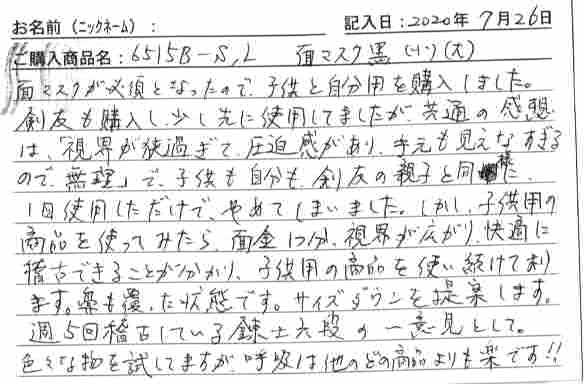 お名前（ニックネーム）：
記入日：2020年7月26日
ご購入商品名：6515B-S,L 面マスク黒(小)(大)
面マスクが必須となったので、子供と自分用を購入しました。
剣友も購入し、少し先に使用してましたが、共通の感想
は、「視界が狭過ぎて、圧迫感があり、手元も見えなすぎる
ので、無理」で、子供も自分も、剣友の親子と同様に、
1回使用しただけで、やめてしまいました。しかし、子供用の
商品を使ってみたら、面金1つ分、視界が広がり、快適に
稽古できることが分かり、子供用の商品を使い続けて居り
ます。鼻も覆った状態です。サイズダウンを提案します。
週5回稽古している錬士六段の一意見として。
色々な物を試してますが、呼吸は他のどの商品よりも楽です!!